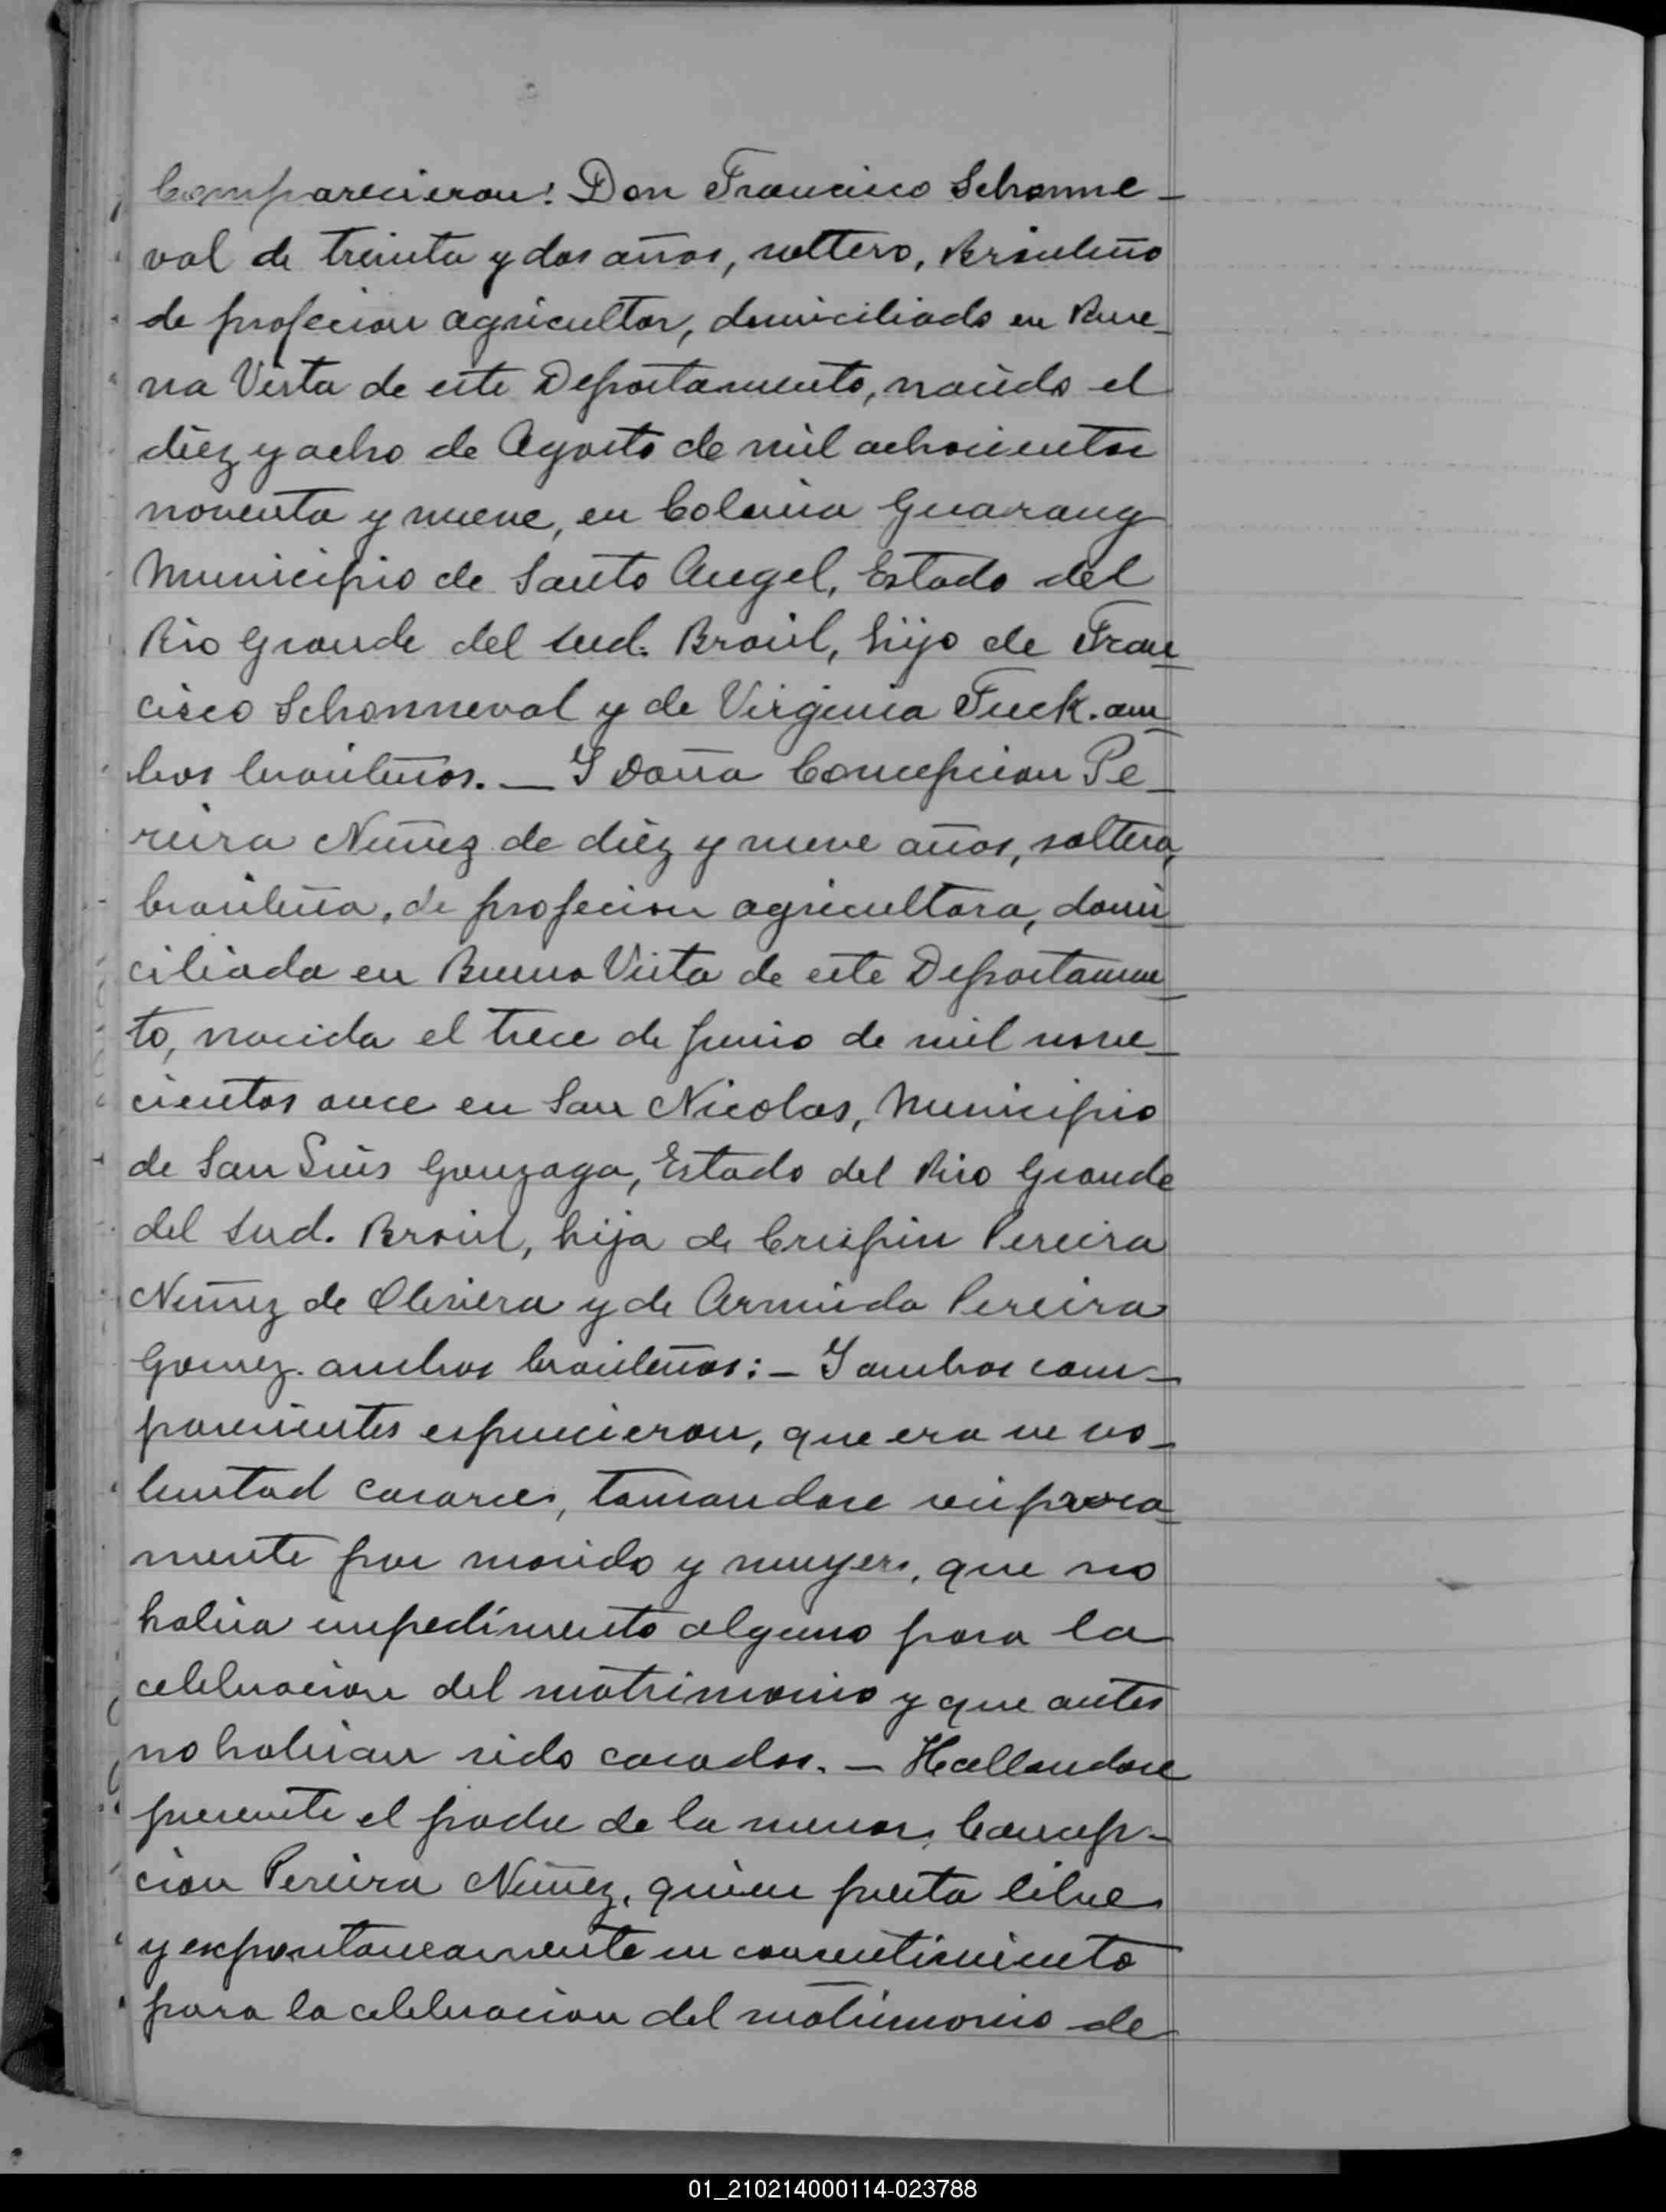 Comparecieron: Don Francisco Schonne-
val de treinta y dos años, soltero, Brasileño
de profecion agricultor, domiciliado en Bue-
na Vista de este Departamento, nacido el
diez y ocho de Agosto de mil ochocientos
noventa y nueve, en Colonia Guarany
Municipio de Santo Angel, Estado del
Rio Grande del Sud. Brasil, hijo de Fran
cisco Schonneval y de Virginia Fuck. am
bos brasileños. — Y Doña Concepcion Pe-
reira Nuñez de diez y nueve años, soltera,
brasileña, de profecion agricultora, domi
ciliada en Buena Vista de este Departamen
to, nacida el trece de Junio de mil nove-
cientos once en San Nicolas, Municipio
de San Luis Gonzaga, Estado del Rio Grande
del Sud. Brasil, hija de Crispin Pereira
Nuñez de Olivera y de Arminda Pereira
Gomez. ambos brasileños: - Y ambos com-
parecientes espucieron, que era su vo-
luntad casarces, tomandose reciproca
mente por marido y muger, que no
habia impedimento alguno para la
celebracion del matrimonio y que antes
no habian sido casados. - Hallandose
presente el padre de la menor, Concep-
cion Pereira Nuñez, quien presta libre
y expontaneamente su consentimiento
para la celebracion del matrimonio de
01_210214000114-023788